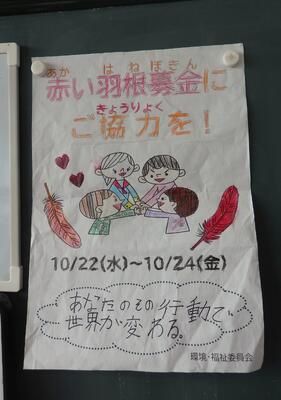 あか はねぼきん
赤い羽根募金に
きょうりょく
ご協力を!
10/22(水)~10/24(金)
あなたのその行動で
世界が変わる。
環境・福祉委員会